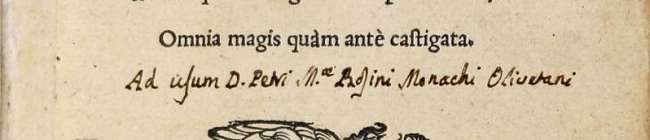 Omnia magis quàm antè castigata.
Ad usum D. Petri M.æ Monachi Olivetani